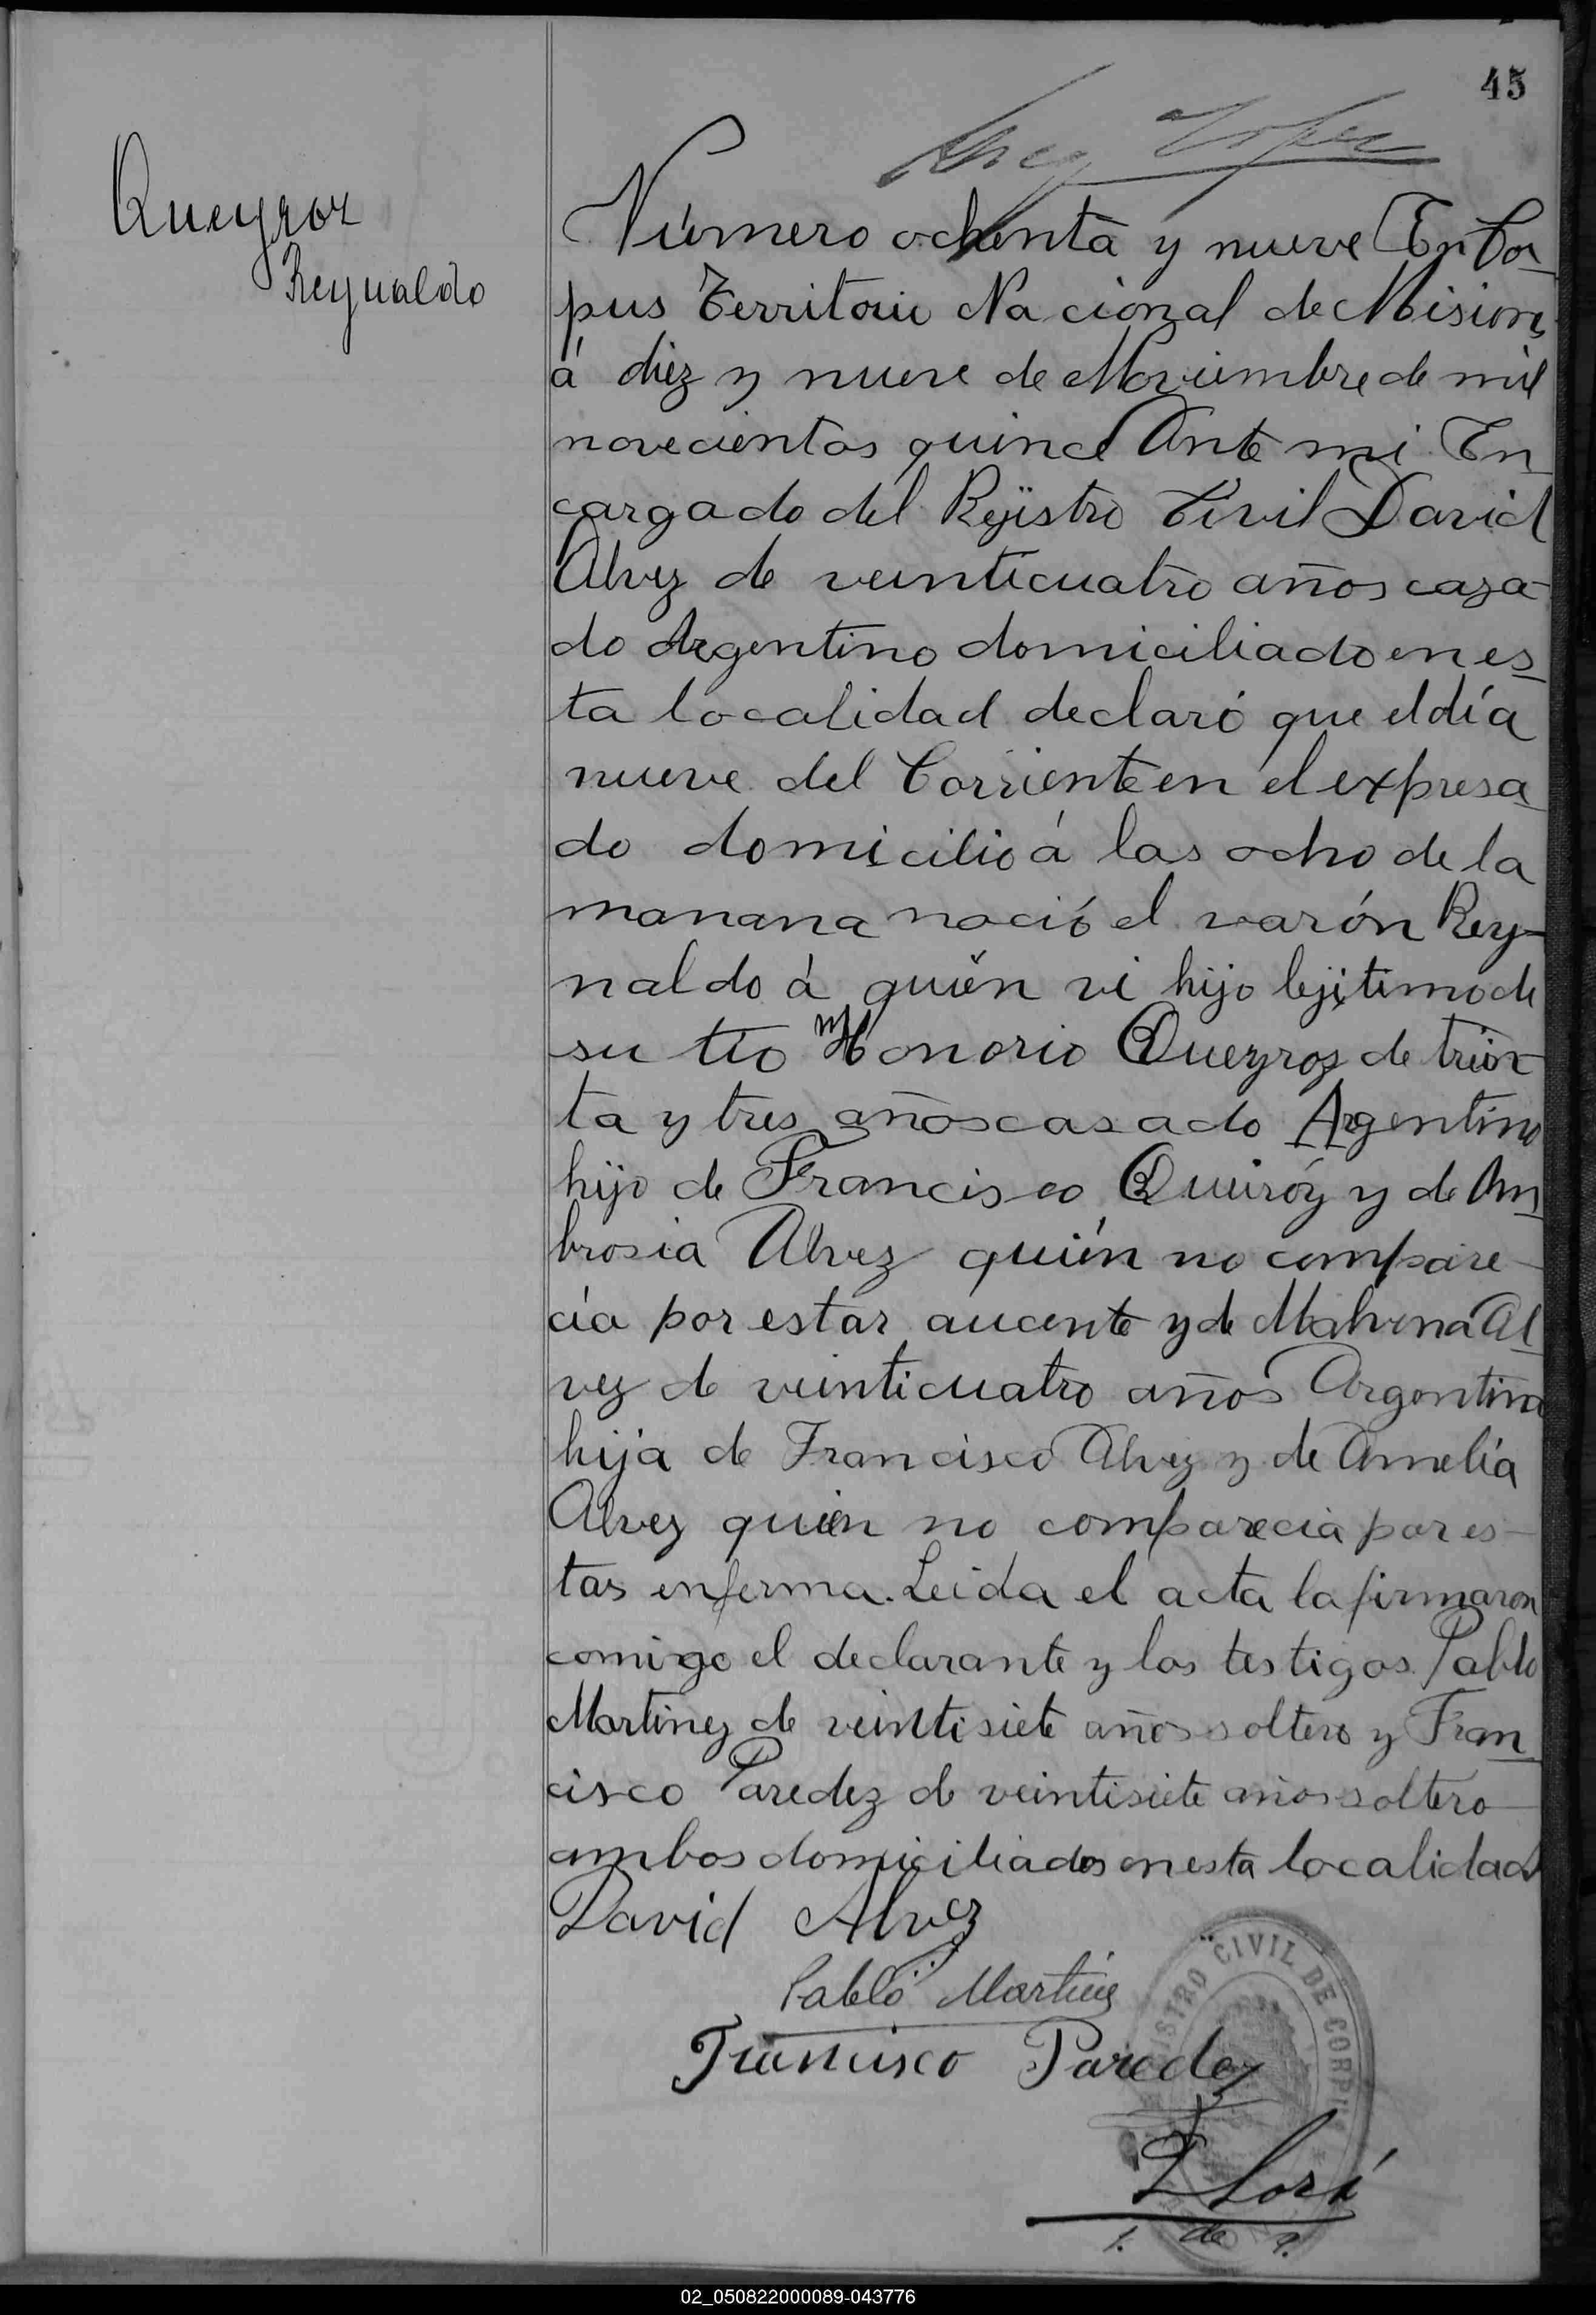 45
Queyroz
Reynaldo
Número ochenta y nueve En Cor
pus Territorio Nacional de Misiones
á diez y nueve de Noviembre de mil
novecientos quince Ante mi En
cargado del Rejistro Civil David
Alvez de veinticuatro años caza
do Argentino domiciliado en es
ta localidad declaró que el día
nueve del Corriente en el expresa
do domicilio á las ocho de la
manana nació el varón Rey-
naldo á quién vi hijo lejitimo de
su tío Honorio Queyroz de trein
ta y tres años casado Argentino
hijo de Francisco Queiróz y de Am
brosia Alvez quién no compare-
cía por estar aucente y de Malvina Al
vez de veinticuatro años Argentina
hija de Francisco Alvez y de Amelia
Alvez quién no comparecia por es-
tar enferma. Leida el acta la firmaron
comigo el declarante y los testigos Pablo
Martinez de veintisiete años soltero y Fran
cisco Paredez de veintisiete años soltero
ambos domiciliados en esta localidad
David Alvez
Pablo Martinez
Francisco Paredez
REGISTRO CIVIL DE CORPUS
J. de P.
02_050822000089-043776